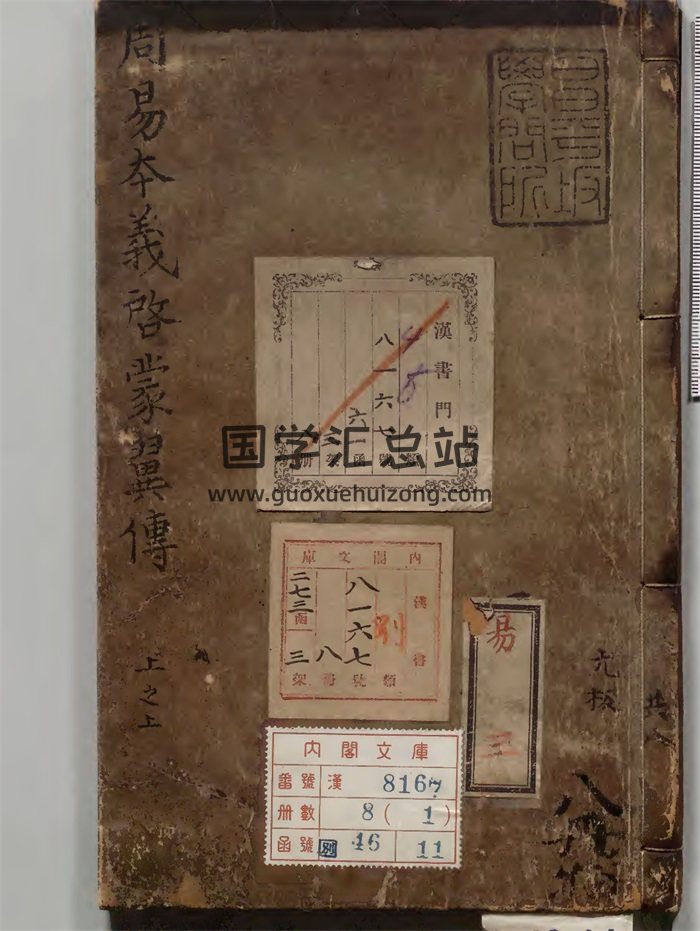 周易本義啓蒙翼傳
上之上
昌平坂
學問所
漢書門
八一六七
六一
冊 架 函 號 類
国学汇总站
www.guoxuehuizong.com
內閣文庫
漢書
八一六七
別
八
二七三函
三
類號冊架
易
三
元板
共八
內閣文庫
番號 漢 8167
冊數 8(1)
函號 別 46 11